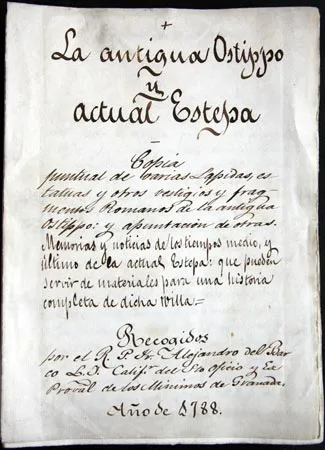 La antigua Ostippo
y
actual Estepa
Copia
puntual de varias Lapidas, es
tatuas y otros vestigios y frag
mentos Romanos de la antigua
Ostippo: y apuntación de otras
Memorias y noticias de los tiempos medio, y
último de la actual Estepa: que pueden
servir de materiales para una historia
completa de dicha Villa=
Recogidos
por el R. P. Fr. Alejandro del Bar
co L. J. Califr. del Sto Oficio y Ex
Proval de los Mínimos de Granada.
Año de 1788.